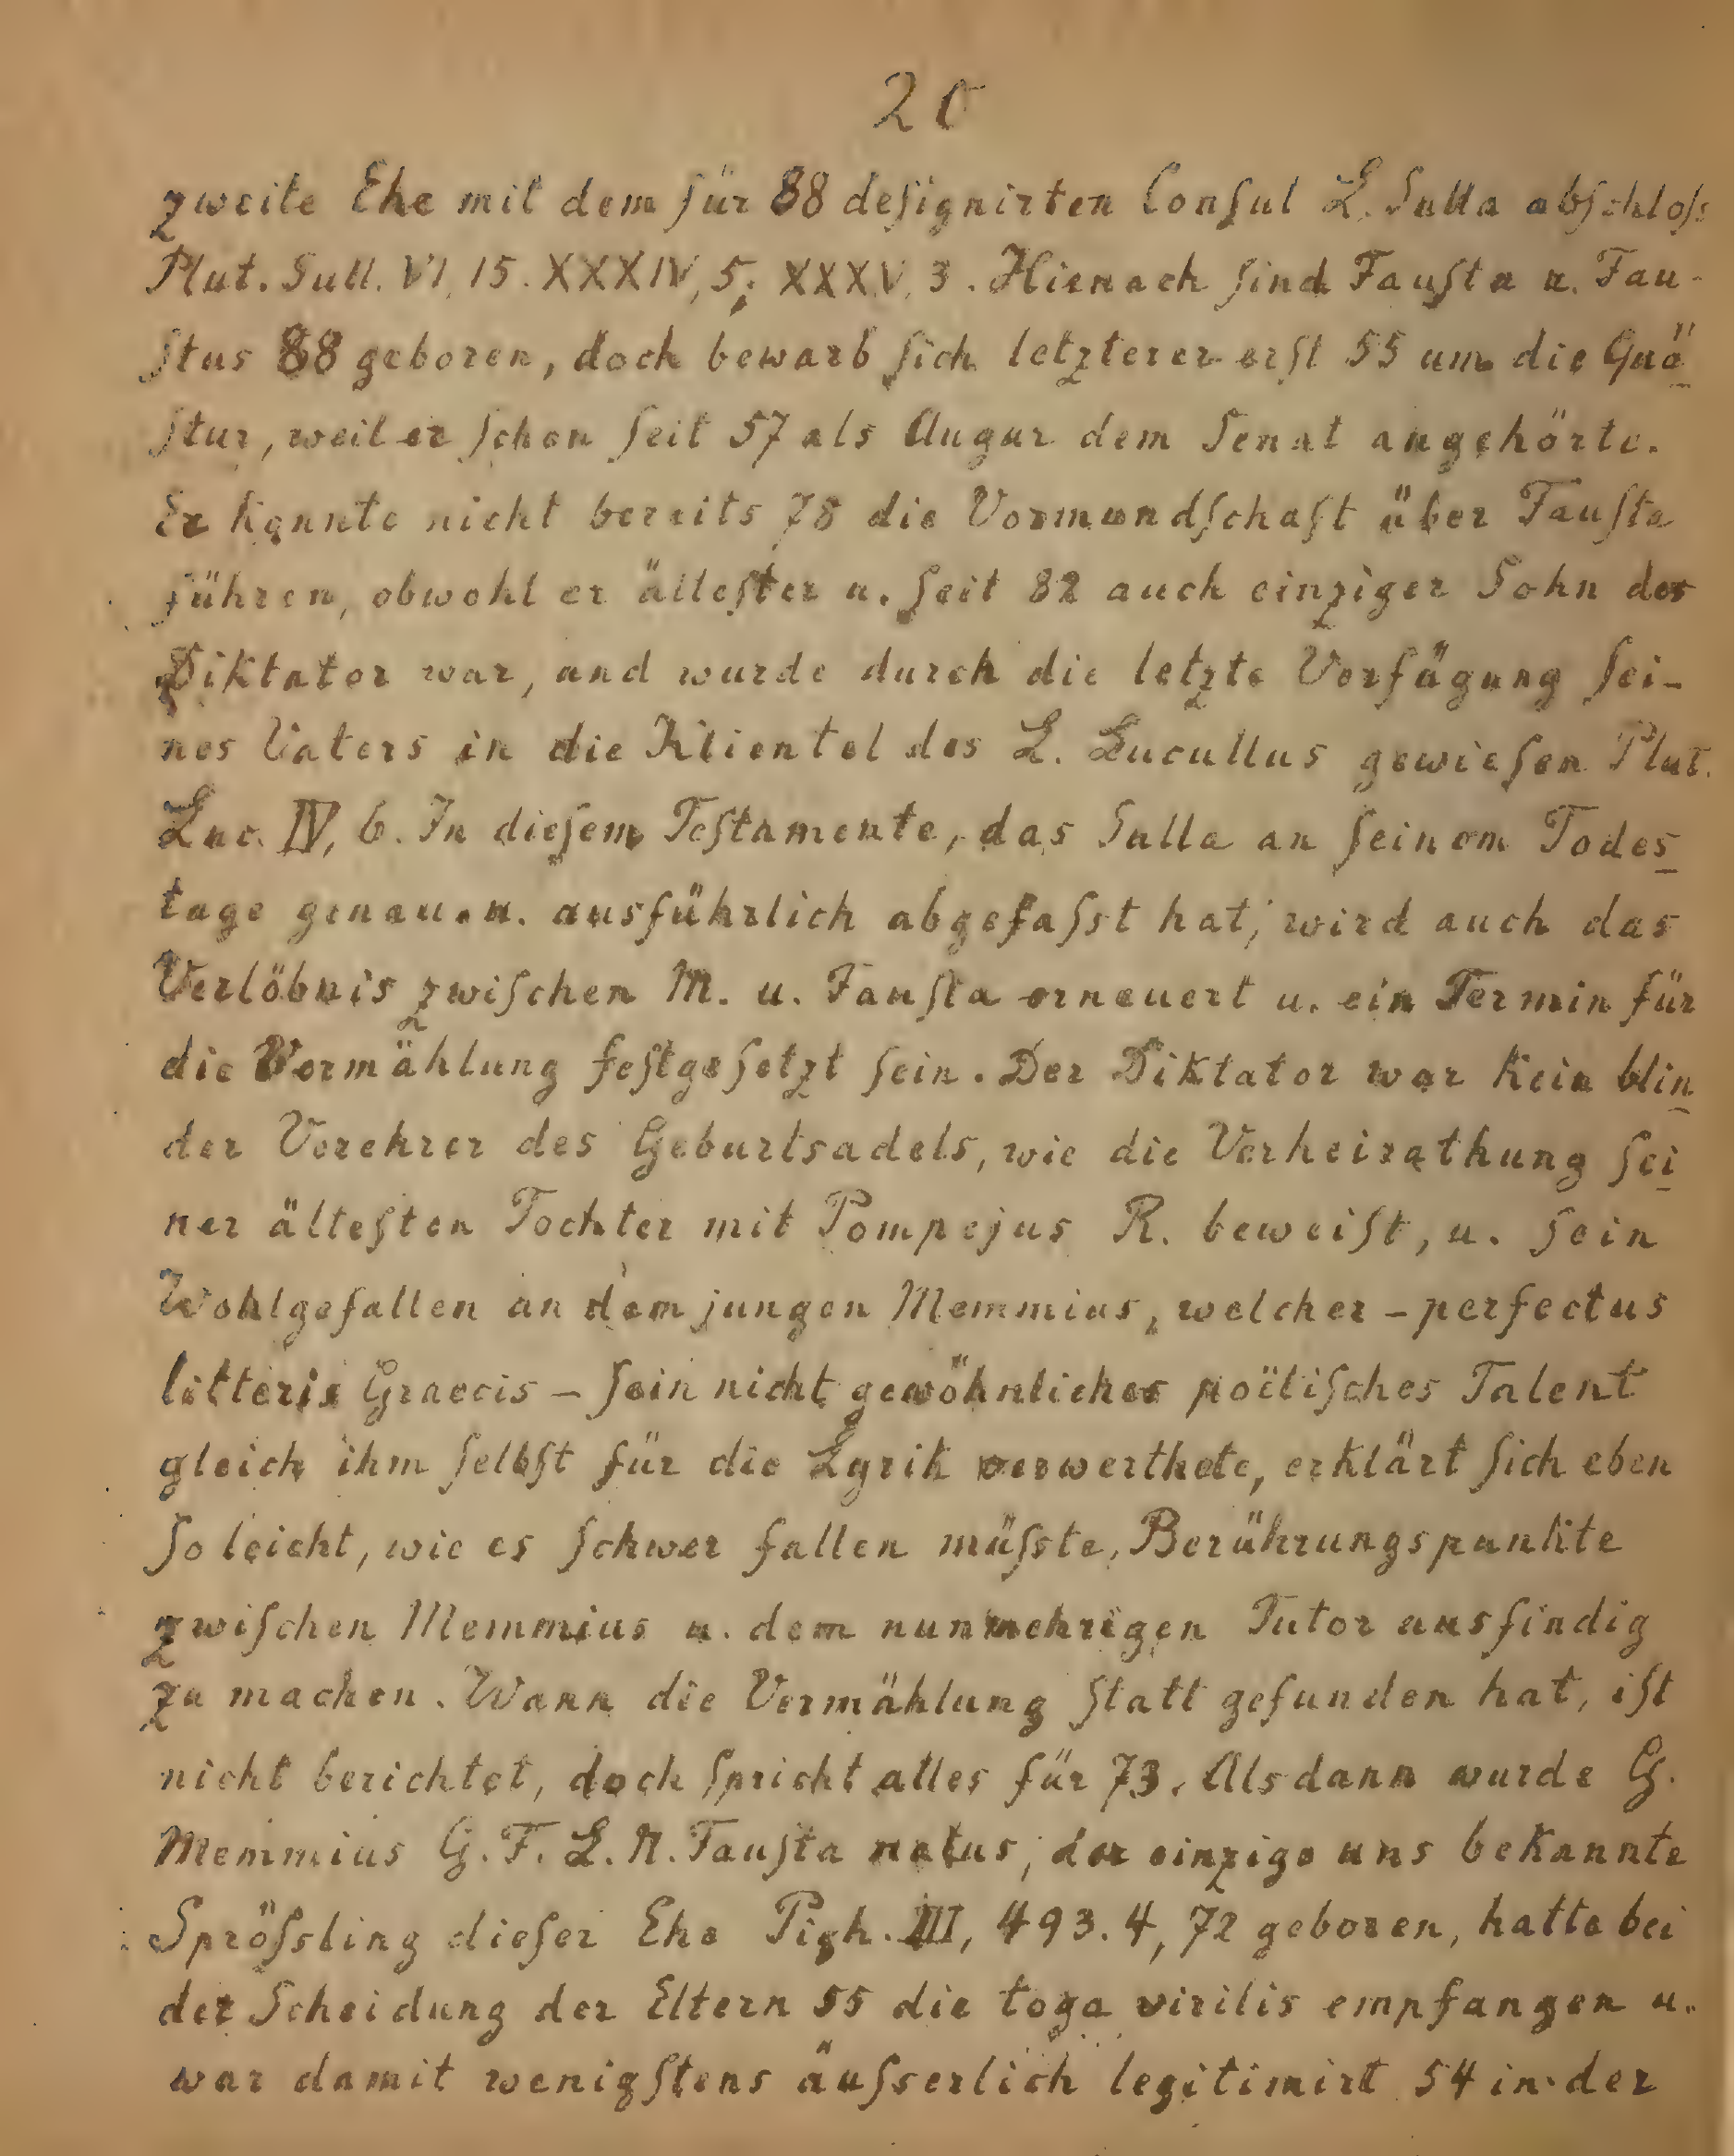 20
zweite Ehe mit dem für 88 deſignirten Conſul L. Sulla abſchloſs
Plut. Sull. VI, 15. XXXIV, 5; XXXV, 3. Hienach ſind Fauſta u. Fau-
ſtus 88 geboren, doch bewarb ſich letzterer erſt 55 um die Quä
ſtur, weil er ſchon ſeit 57 als Augur dem Senat angehörte.
Er konnte nicht bereits 78 die Vormundſchaft über Fauſta
führen, obwohl er älteſter u. ſeit 82 auch einziger Sohn des
Diktator war, und wurde durch die letzte Verfügung ſei-
nes Vaters in die Klientel des L. Lucullus gewieſen Plut.
Luc. IV, 6. In dieſem Teſtamente, das Sulla an ſeinem Todes
tage genau u. ausführlich abgefaſst hat, wird auch das
Verlöbnis zwiſchen M. u. Fauſta erneuert u. ein Termin für
die Vermählung feſtgeſetzt ſein. Der Diktator war kein blin
der Verehrer des Geburtsadels, wie die Verheirathung ſei
ner älteſten Tochter mit Pompejus R. beweiſt, u. ſein
Wohlgefallen an dem jungen Memmius, welcher – perfectus
litteris Graecis – ſein nicht gewöhnliches poëtiſches Talent
gleich ihm ſelbſt für die Lyrik verwerthete, erklärt ſich eben
ſo leicht, wie es ſchwer fallen müſste, Berührungspunkte
zwiſchen Memmius u. dem nunmehrigen Tutor ausfindig
zu machen. Wann die Vermählung ſtatt gefunden hat, iſt
nicht berichtet, doch ſpricht alles für 73. Alsdann wurde G.
Memmius G. F. L. N. Fauſta natus, der einzige uns bekannte
Spröſsling dieſer Ehe Pigh. III, 493. 4, 72 geboren, hatte bei
der Scheidung der Eltern 55 die toga virilis empfangen u.
war damit wenigſtens äuſserlich legitimirt 54 in der